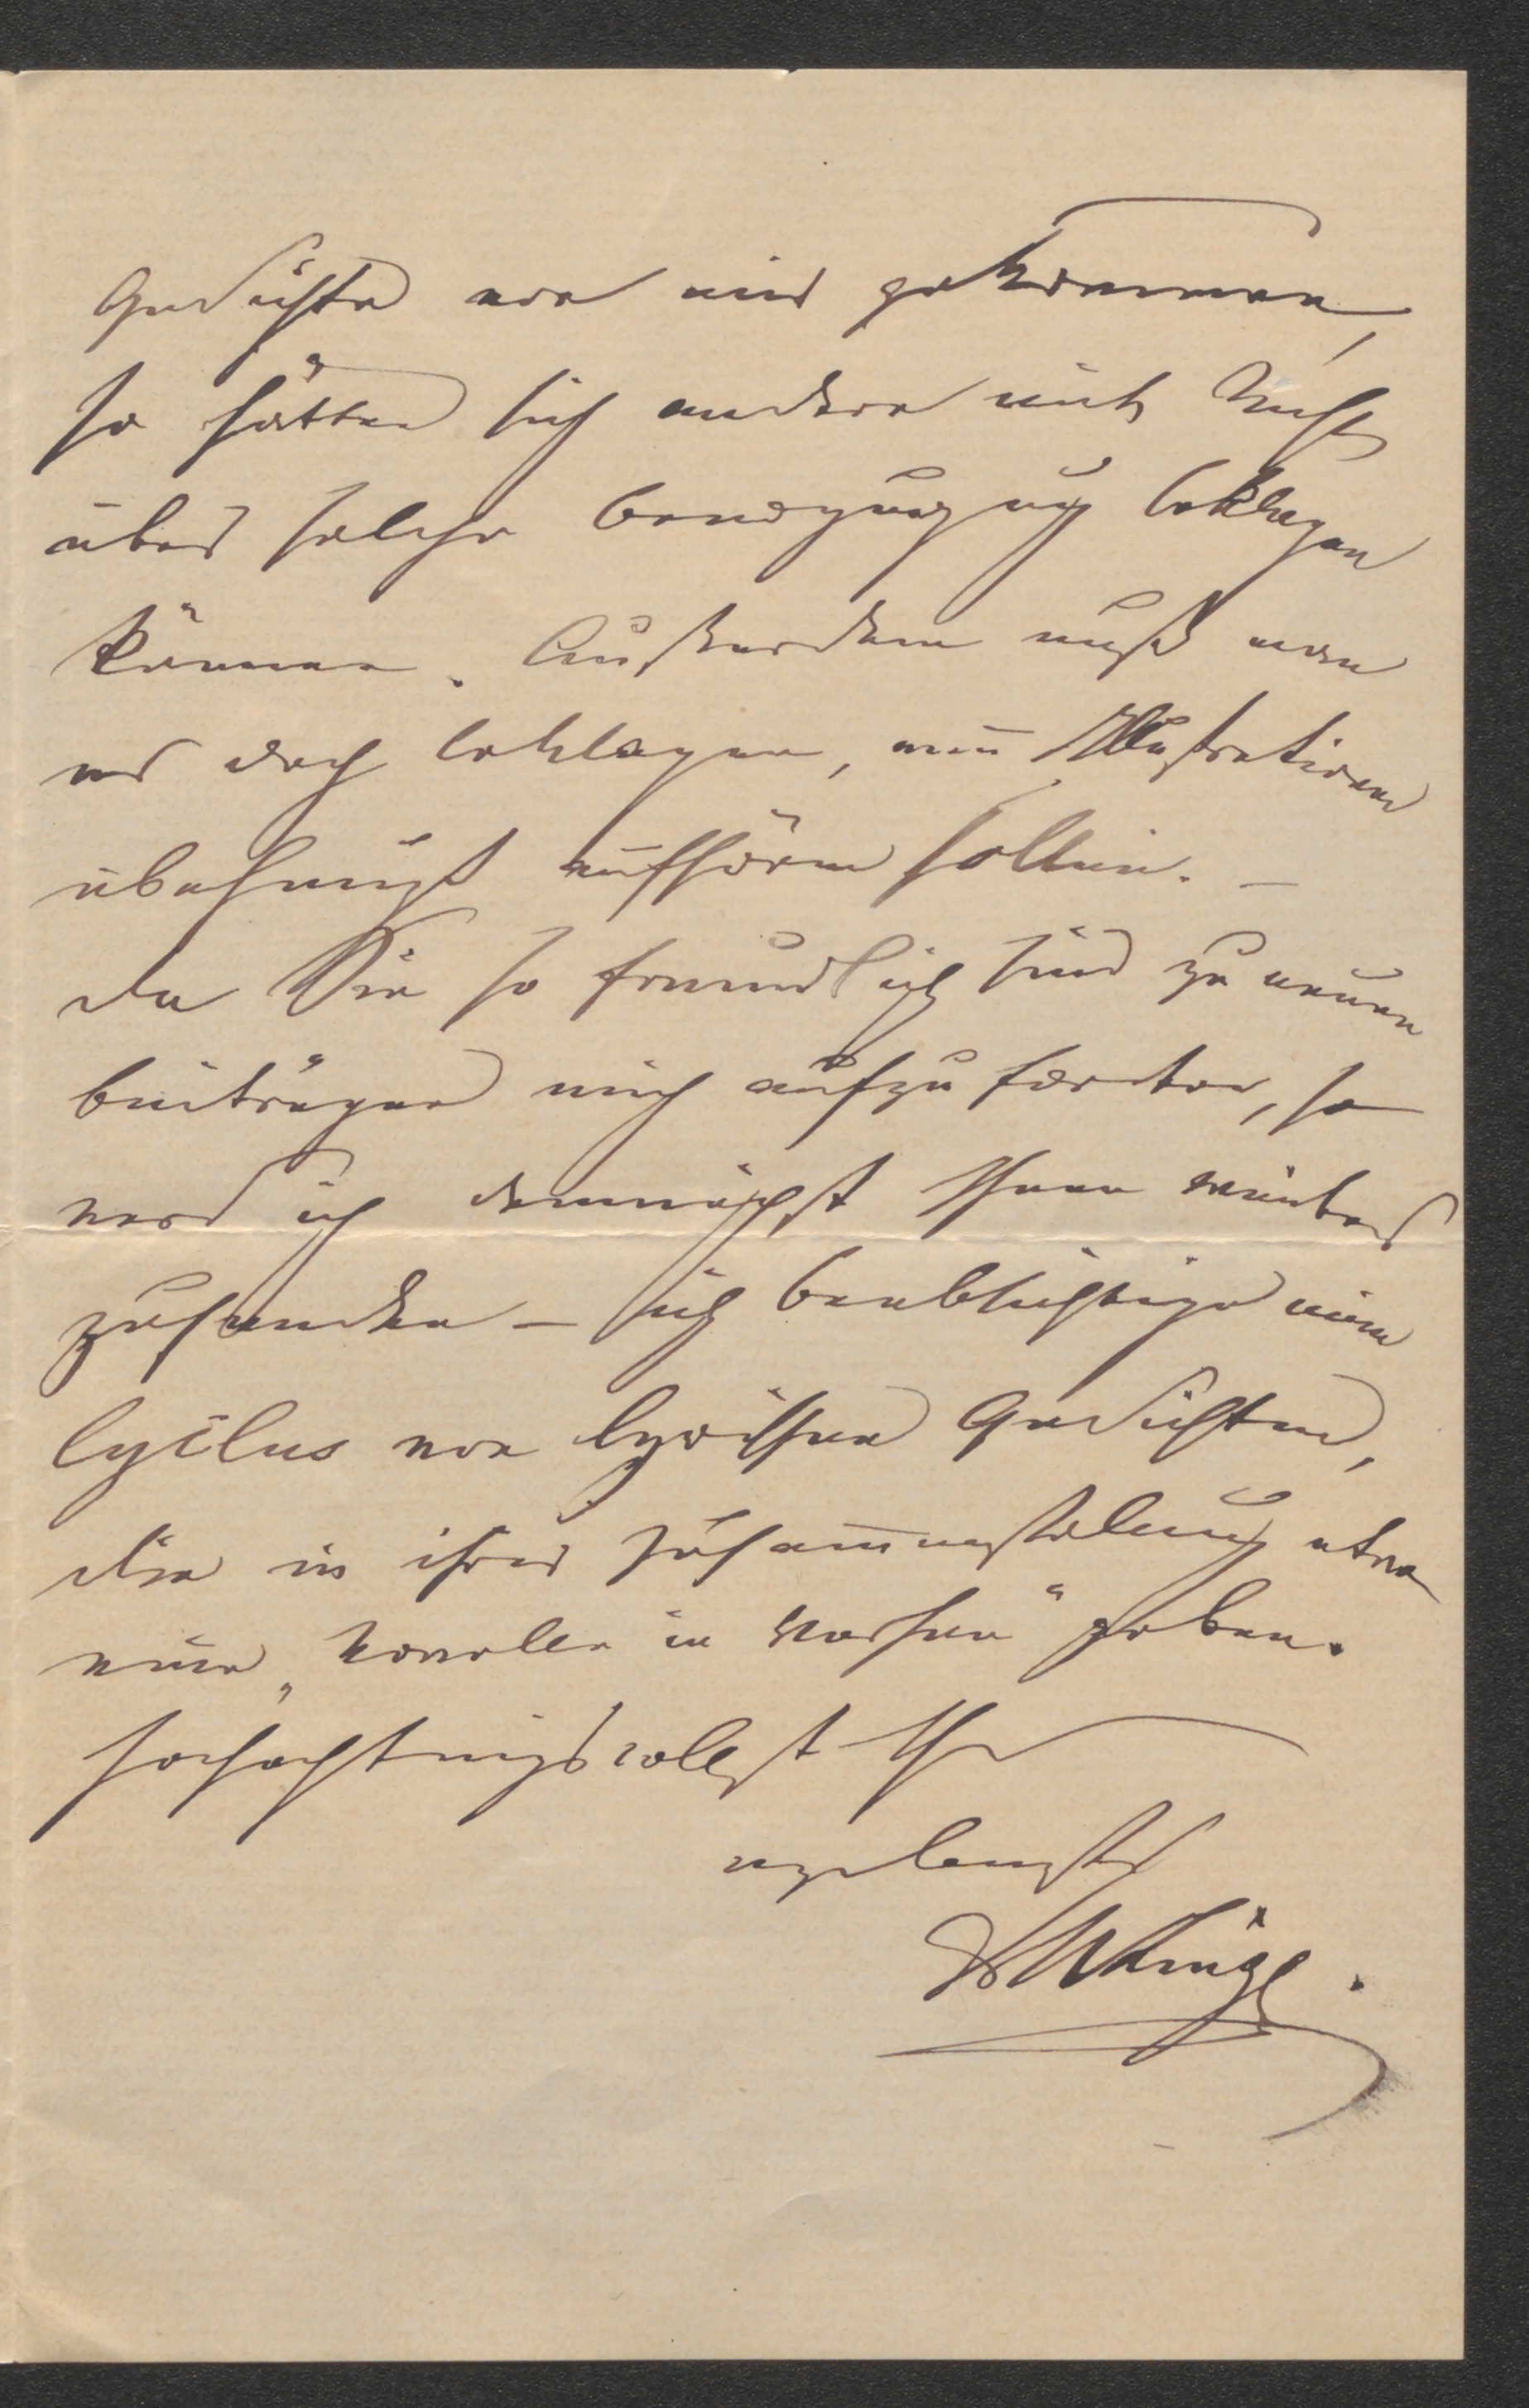 Gedichte von mir gekommen,
so hätten sich andere mit Recht
über solche Bevorzugung beklagen
können. Außerdem muß man
es doch beklagen, wen̅ Illustrationen
überhaupt aufhören sollen. –
Da Sie so freundlich sind zu neuen
Beiträgen mich aufzufordern, so
werd ich demnächst Ihnen weiteres
zusenden – ich beabsichtige einen
Cyclus von lyrischen Gedichten,
die in ihrer Zusam̅enstellung etwa
eine „Novelle in Versen“ geben.
Hochachtungsvollst Ihr
ergebenster